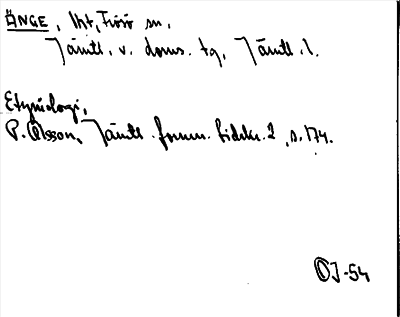 ÄNGE, lht, Frösö sn,
Jämtl. v. doms. tg, Jämtl. l.
Etymologi,
P. Olsson, Jämtl. fornm. tidskr. 2, s. 174.
OJ-54